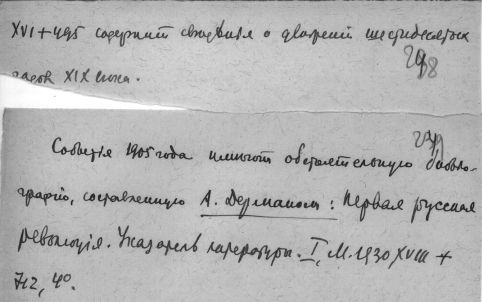 XVI + 495 содержит сведения о движении шестидесятых
годов XIX века.
298
299
События 1905 года имеют обстоятельную библио-
графию, составленную А. Дерманом: Первая русская
революція. Указатель литературы. I, М. 1930 XVIII +
712, 4°.